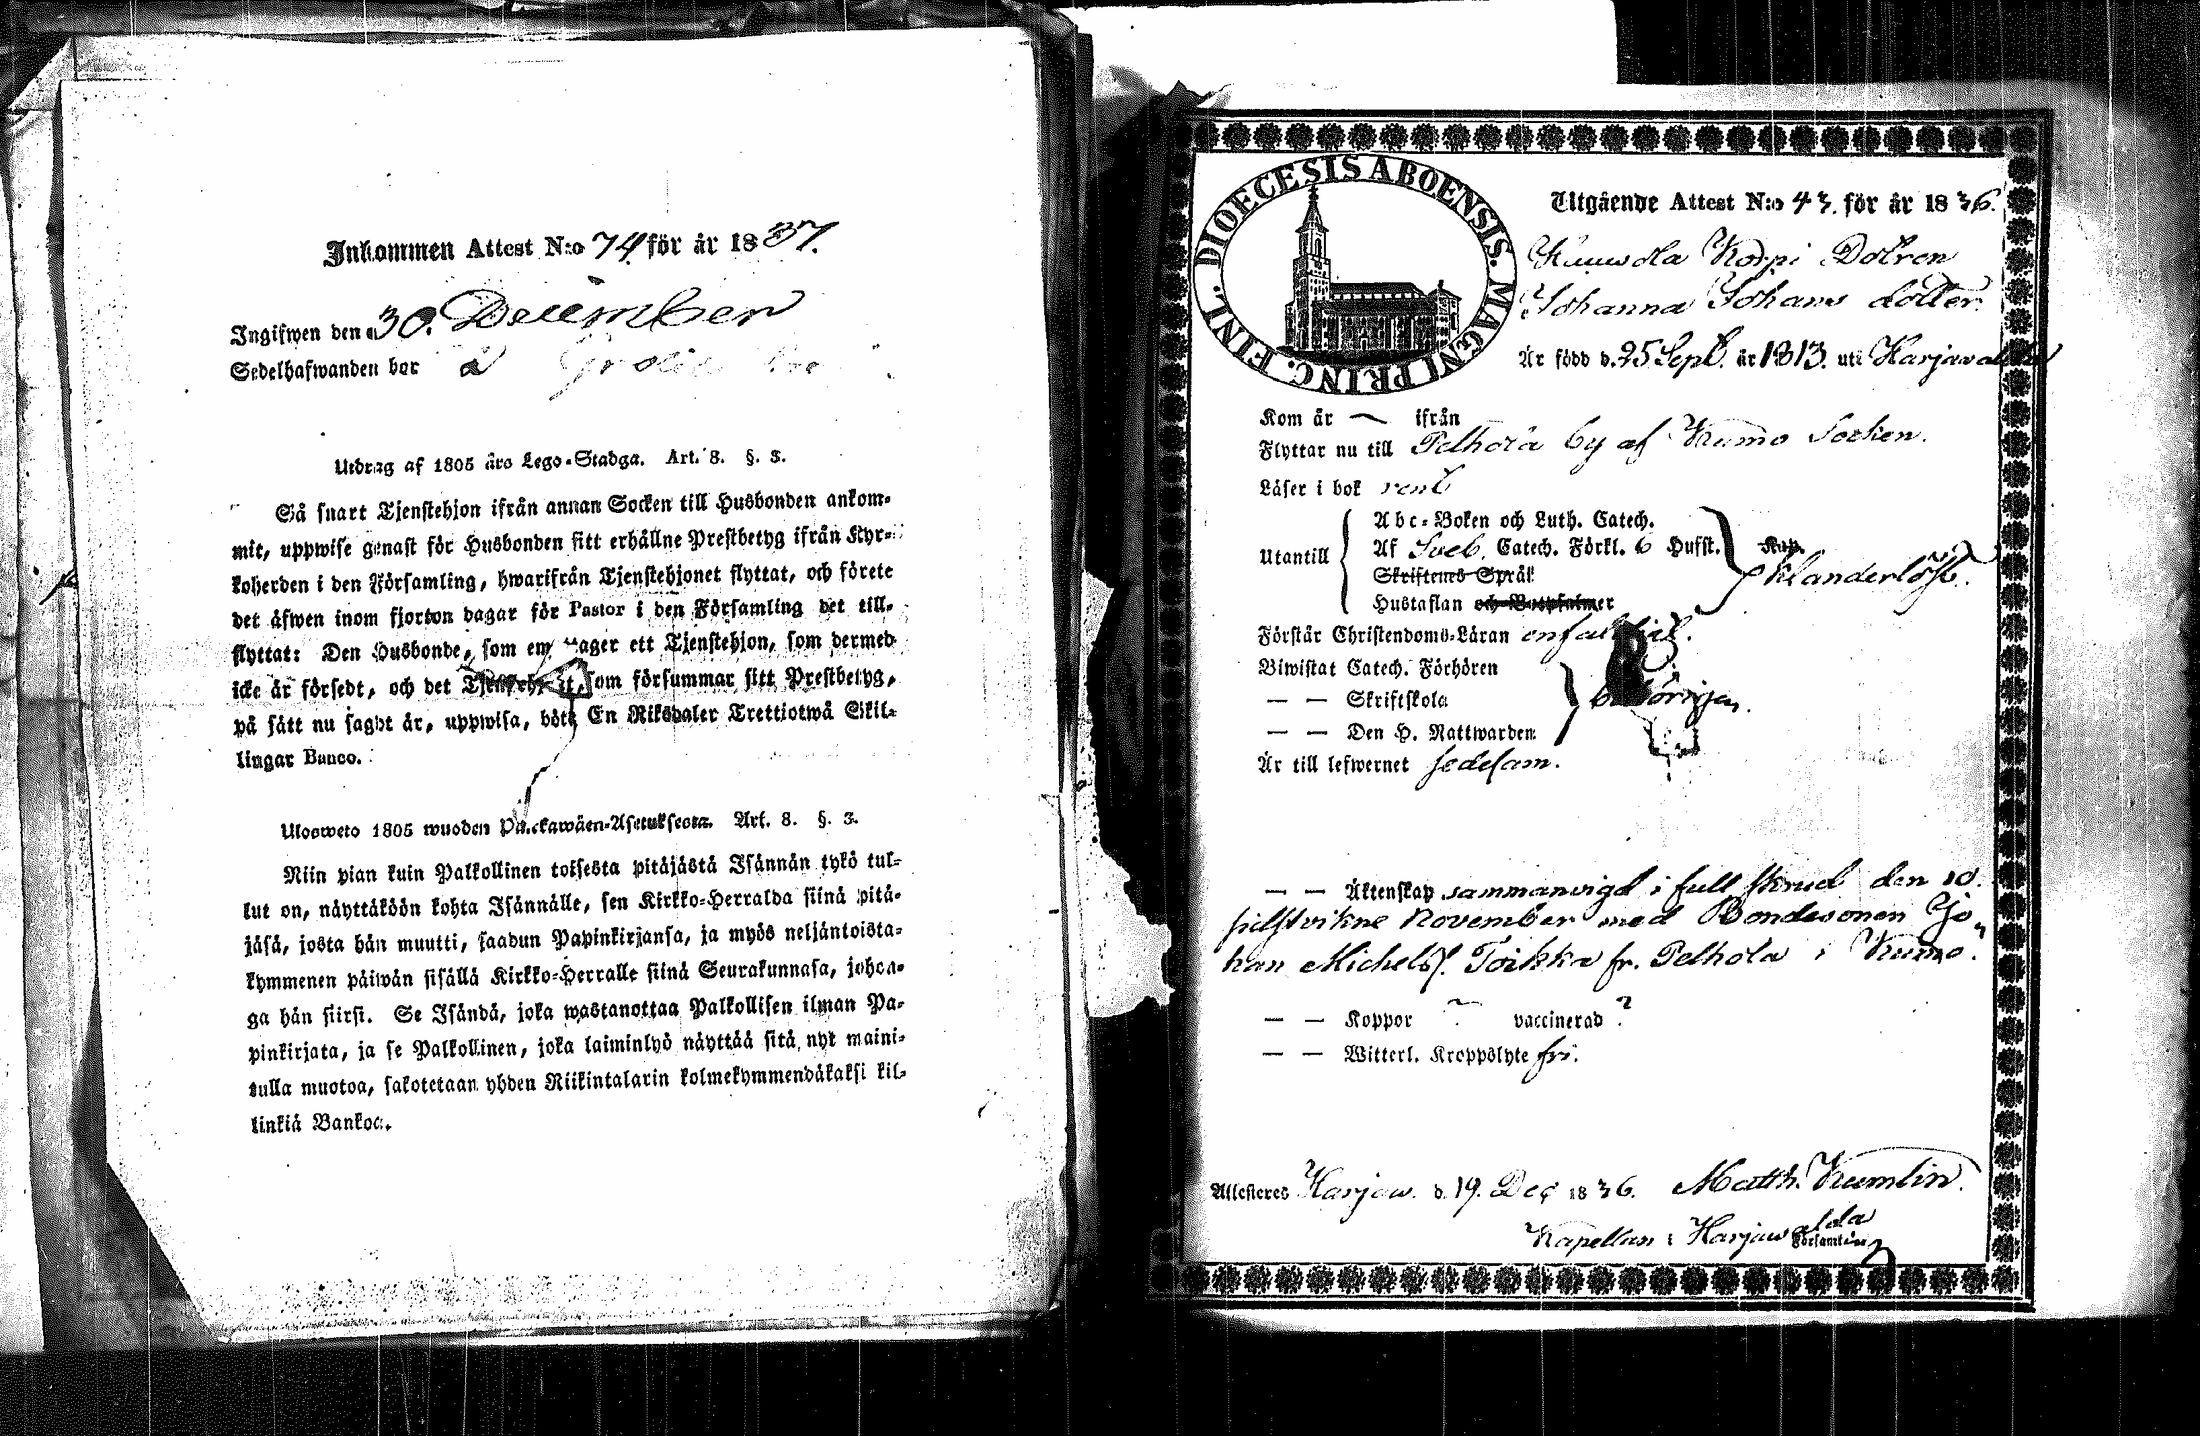 Inkommen Attest N:o 74 för år 1837.
Ingifwen den 30. December
Sedelhafwanden bor å
Utdrag af 1805 års Lego-Stadga. Art. 8. §. 3.
Så snart Tjenstehjon ifrån annan Socken till Husbonden ankom-
mit, uppwise genast för Husbonden sitt erhållne Prestbetyg ifrån Kyr-
koherden i den Församling, hwarifrån Tjenstehjonet flyttat, och förete
det äfwen inom fjorton dagar för Pastor i den Församling det till-
flyttat: Den Husbonde, som em ager ett Tjenstehjon, som dermed
icke är försedt, och det som försummar sitt Prestbetyg,
på sätt nu sagdt är, uppwisa, böte En Riksdaler Trettiotwå Skil-
lingar Banco.
Ulosweto 1805 wuoden Palckawäen-Asetuksesta. Art. 8. §. 3.
Niin pian kuin Palkollinen toisesta pitäjästä Isännän tykö tul-
lut on, näyttäköön kohta Isännälle, sen Kirkko-Herralda siinä pitä-
jäsä, josta hän muutti, saadun Papinkirjansa, ja myös neljäntoista-
kymmenen päiwän sisällä Kirkko-Herralle siinä Seurakunnasa, johon-
ga hän siirsi. Se Isändä, joka wastanottaa Palkollisen ilman Pa-
pinkirjata, ja se Palkollinen, joka laiminlyö näyttää sitä nyt maini-
tulla muotoa, sakotetaan yhden Riikintalarin kolmekymmendäkaksi kil-
linkiä Bankoa.
DIOECESIS ABOENSIS. MAGNI PRINC. FINL.
Utgående Attest N:o 43. för år 1836.
Korpi Dottren
Johanna Johans dotter
Är född d. 25 Sept. år 1813. uti Harjawalda
Kom år — ifrån
Flyttar nu till Pelhola by af Kumo Socken.
Läser i bok rent
Utantill
Abc-Boken och Luth. Catech.
Af Sveb. Catech. Förkl. 6 Hufst.
Skriftenes Språk
Hustaflan och Botpsalmer
Klanderlöst.
Förstår Christendoms-Läran enfaldigt.
Biwistat Catech. Förhören
— — Skriftskola behörigen.
— — Den H. Nattwarden
Är till lefwernet sedesam.
— — Äktenskap sammanvigd i full skrud den 10.
November med Bondesonen Jo-
han Michelss. Toikka fr. Pelhola i Kumo.
— — Koppor ? vaccinerad ?
— — Witterl. Kroppslyte fri.
Attesteras Harjaw. d. 19. Dec 1836. Matth. Kumlin.
Kapellan i Harjawalda Församling